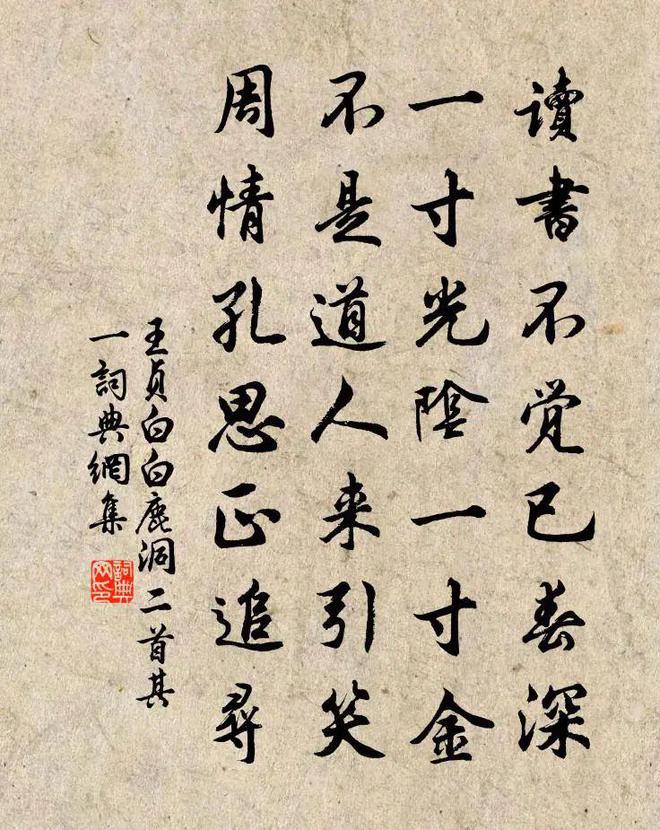 讀書不覚已春深
一寸光陰一寸金
不是道人来引笑
周情孔思正追尋
王貞白白鹿洞二首其
一詞典網集
詞典
网印